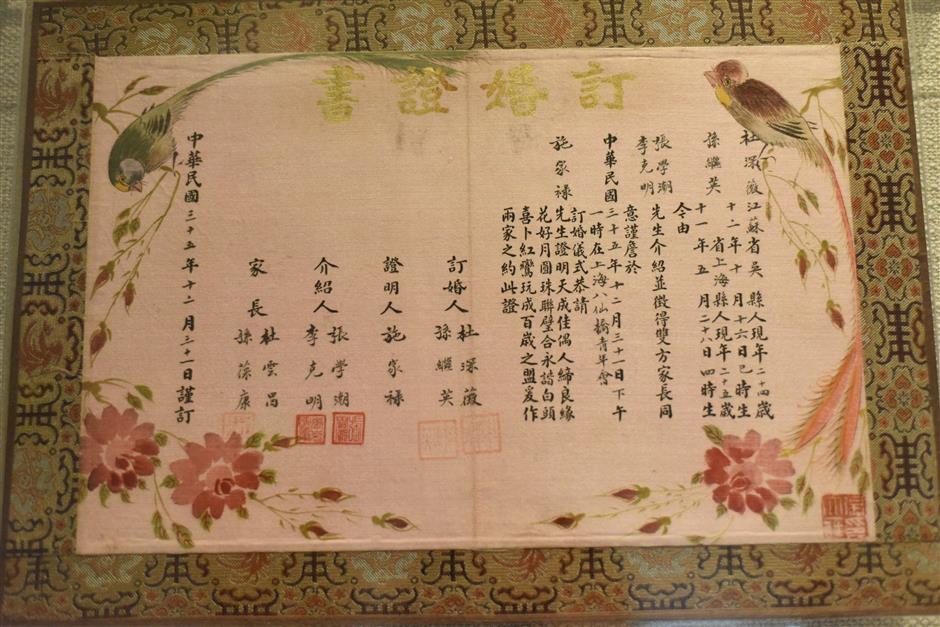 訂婚證書
杜深薇江蘇省吳縣人現年二十四歲
十二年十月十六日巳時生
孫繼英 省上海縣人現年二十五歲
十一年五月二十八日四時生
今由
張學潮
李克明
先生介紹並徵得雙方家長同
意謹詹於
中華民國三十五年十二月三十一日下午
一時在上海八仙橋青年會
訂婚儀式恭請
施家祿先生證明天成佳偶人締良緣
花好月圓珠聯璧合永諧白頭
喜卜紅鸞玩成百歲之盟爰作
兩家之約此證
訂婚人 杜深薇
孫繼英
證明人 施家祿
介紹人 張學潮
李克明
家長 杜雲昌
孫蓀康
中華民國三十五年十二月三十一日謹訂